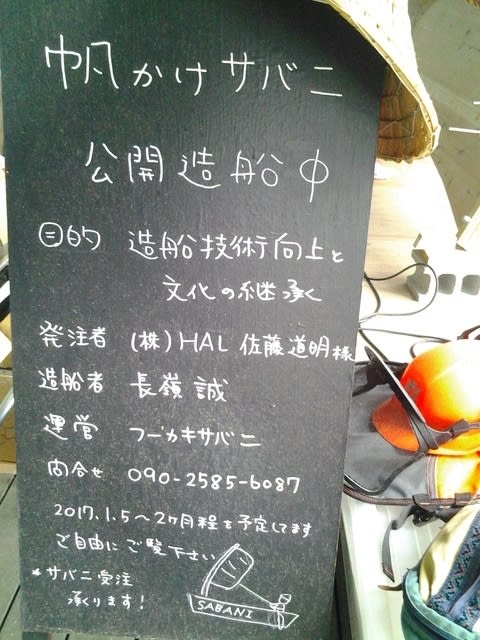 帆かけサバニ
公開造船中
目的 造船技術向上と
文化の継承く
発注者 (株)HAL 佐藤道明様
造船者 長嶺誠
運営 フーカキサバニ
問合せ 090-2585-6087
2017.1.5〜2ヶ月程を予定してます
ご自由にご覧下さい
*サバニ受注
承ります!
SABANI